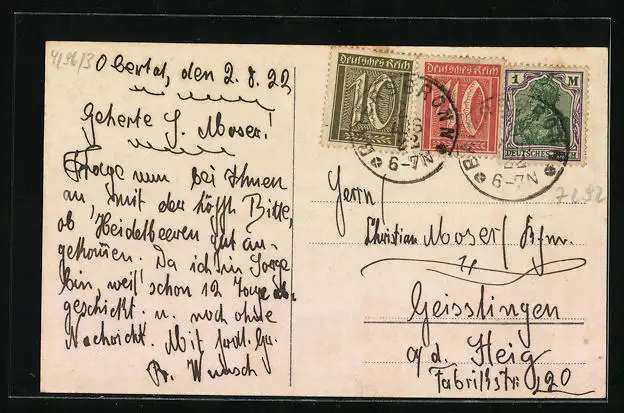 4/96/3
Obertal, den 2.8.22
Geherte H. Moser!
Frage nun bei Ihnen
an, mit der höfl. Bitte,
ob Heidelbeeren gut an-
gekommen. Da ich in Sorge
bin, weil schon 12 Tage ab-
geschickt u. noch ohne
Nachricht. Mit fredl. Gr.
Fr. Wunsch
Deutsches Reich
10
Deutsches Reich
10
1 M
DEUTSCHES REICH
BRONN
9-7N
9-7N
Herrn
Christian Moser / Kfm.
Geisslingen
a/d. Steig
Fabrikstr. 20